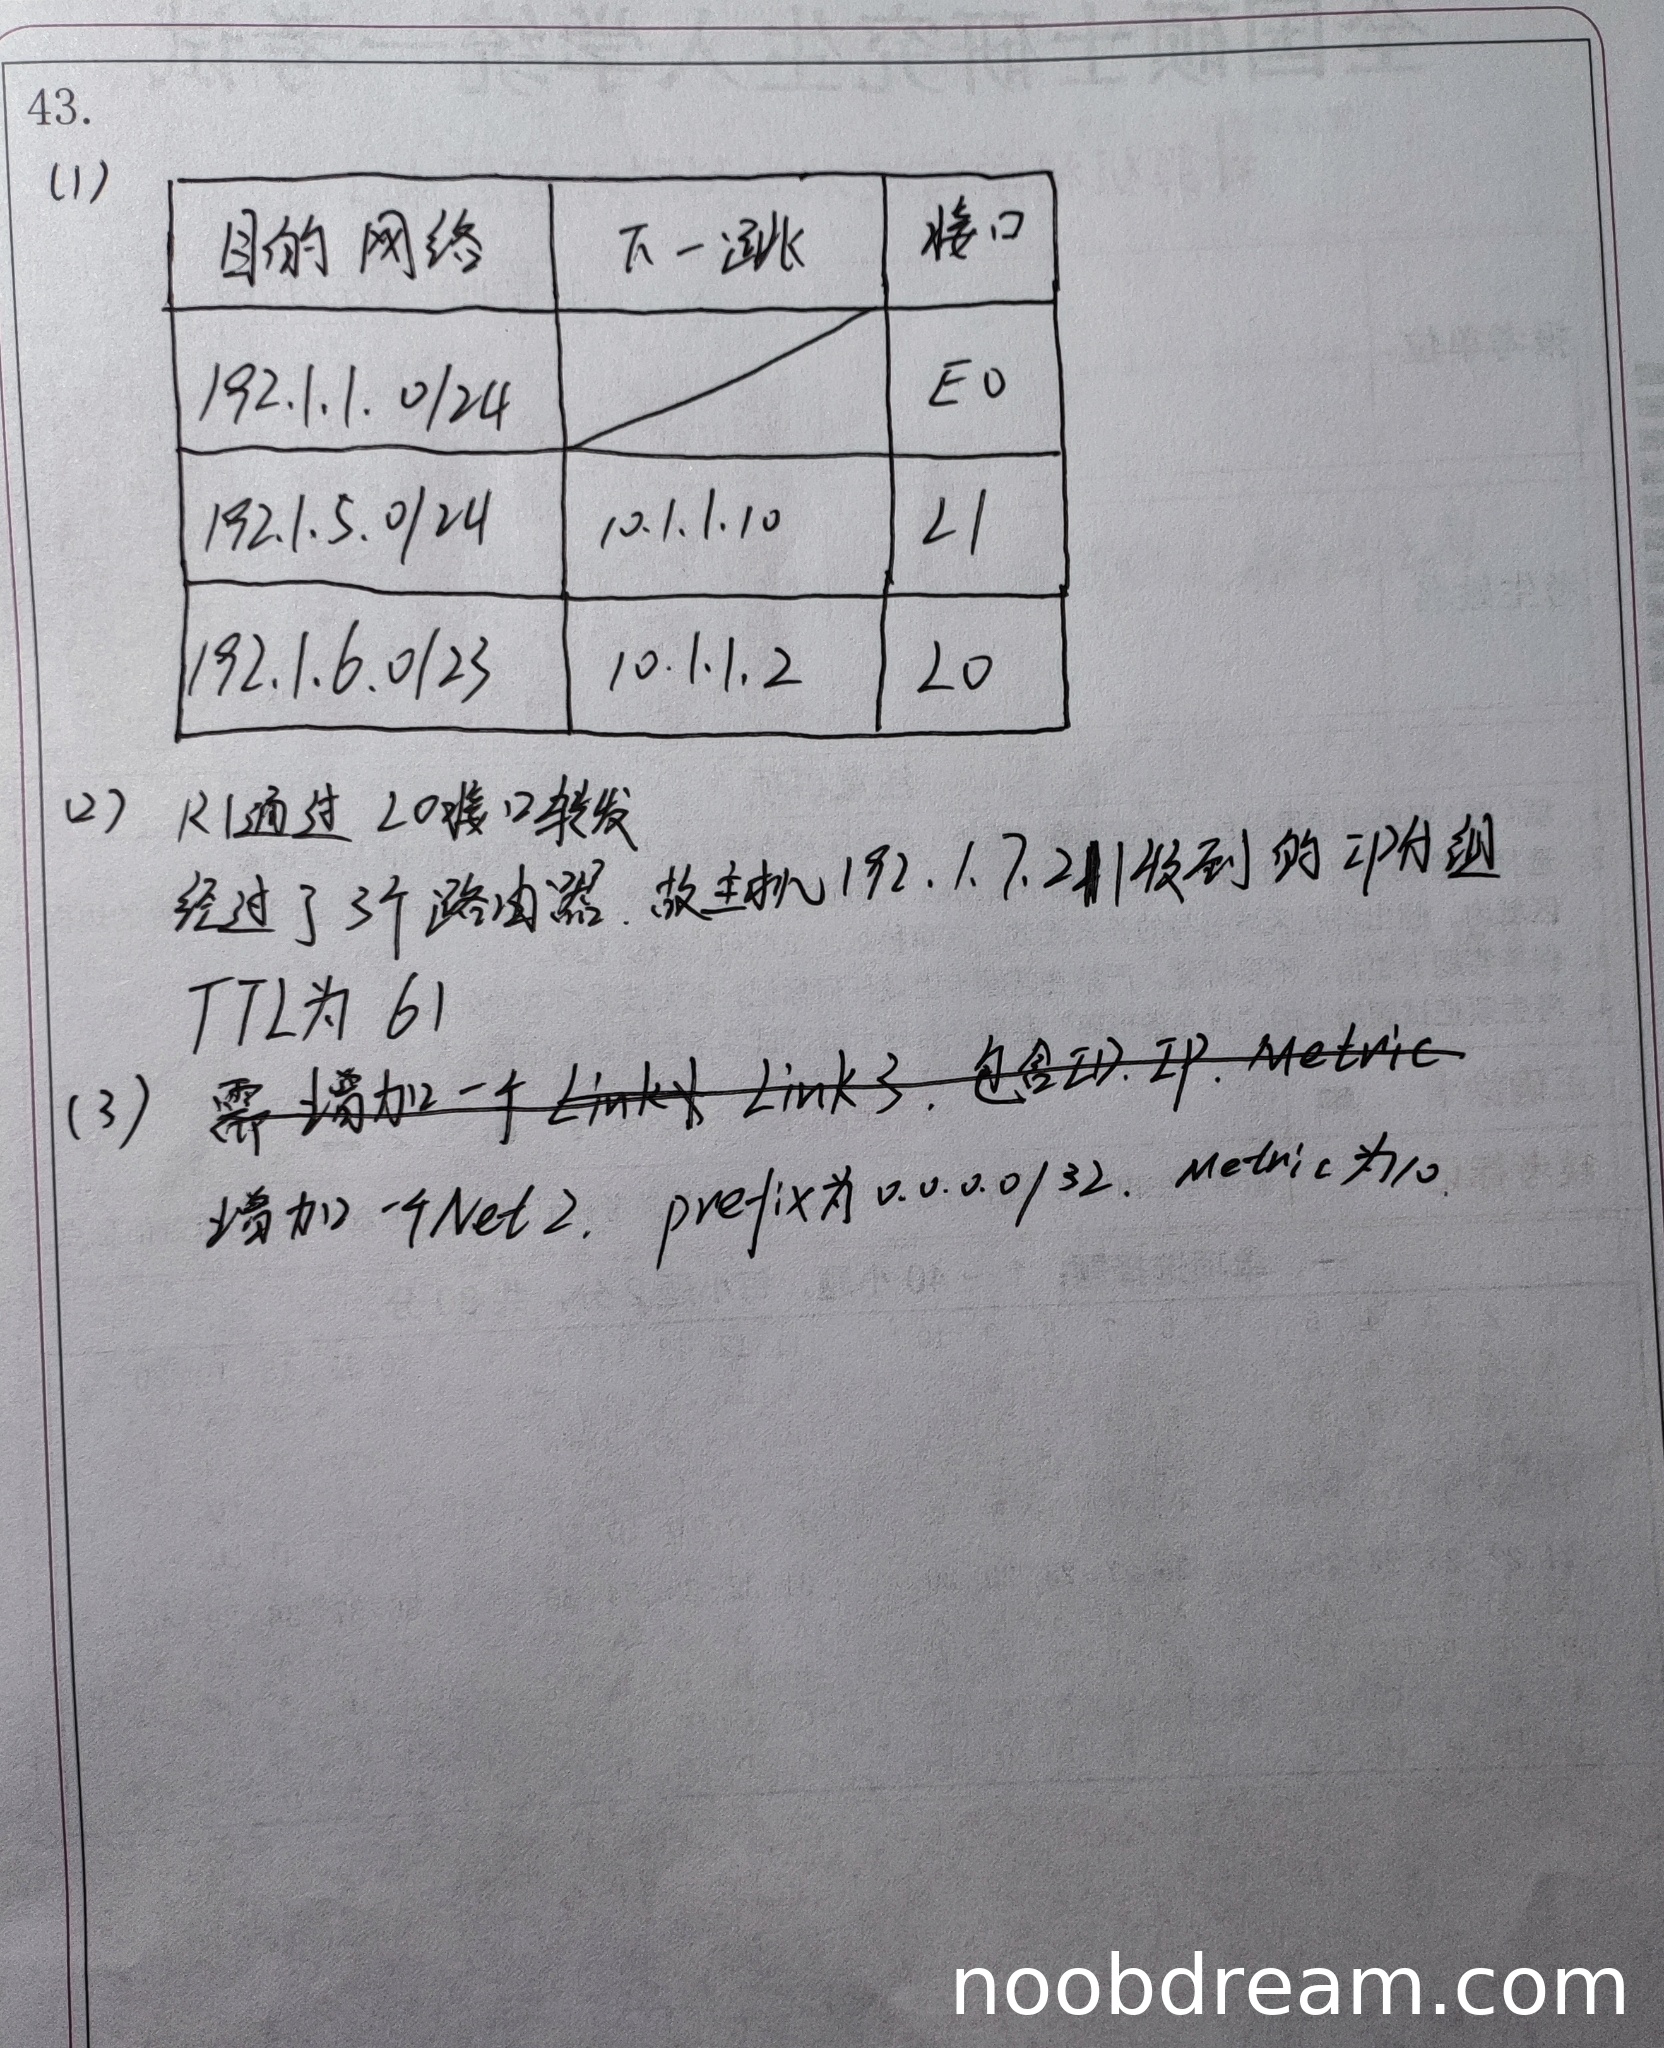 43.
(1)
目的网络 下一跳 接口
192.1.1.0/24 E0
192.1.5.0/24 10.1.1.10 L1
192.1.6.0/23 10.1.1.2 L0
(2) R1通过 L0接口转发
经过了3个路由器.故主机192.1.7.211收到的IP分组
TTL为 61
(3) 需增加一个 Link为 Link3.包含ID.IP.Metric
增加一个Net2. prefix为0.0.0.0/32. Metric为10.
noobdream.com